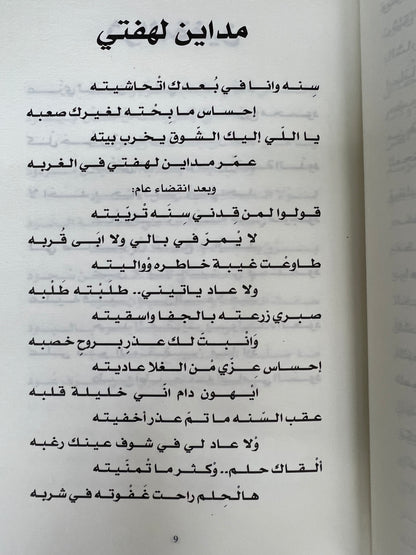 مداين لهفتي
سِنه وانا في بُعدك اتْحاشيته
إحساس ما بحْته لغيرك صعبه
يا اللّي إليك الشّوق يخرب بيته
عمَر مداين لهفتي في الغربه
وبعد انقضاء عام:
قولوا لمن قِدني سِنَه تْريّيته
لا يُمرّ في بالي ولا ابى قُربه
طاوعْت غيبة خاطره وْواليته
ولا عاد ياتيني.. طلَبْته طَلْبه
صبري زرعته بالجفا واسقيته
وَانْبتّ لك عذرٍ بروح خصبه
إحساس عِزّي مْن الغلا عاديته
ايْهون دام انّي خليلة قلبه
عقب السّنه ما تمّ عذر أخفيته
وْلا عاد لي في شوف عينك رغبه
ألقاك حلم.. وْكثر ما تْمنّيته
هالْحِلم راحت غَفْوته في شربه
9